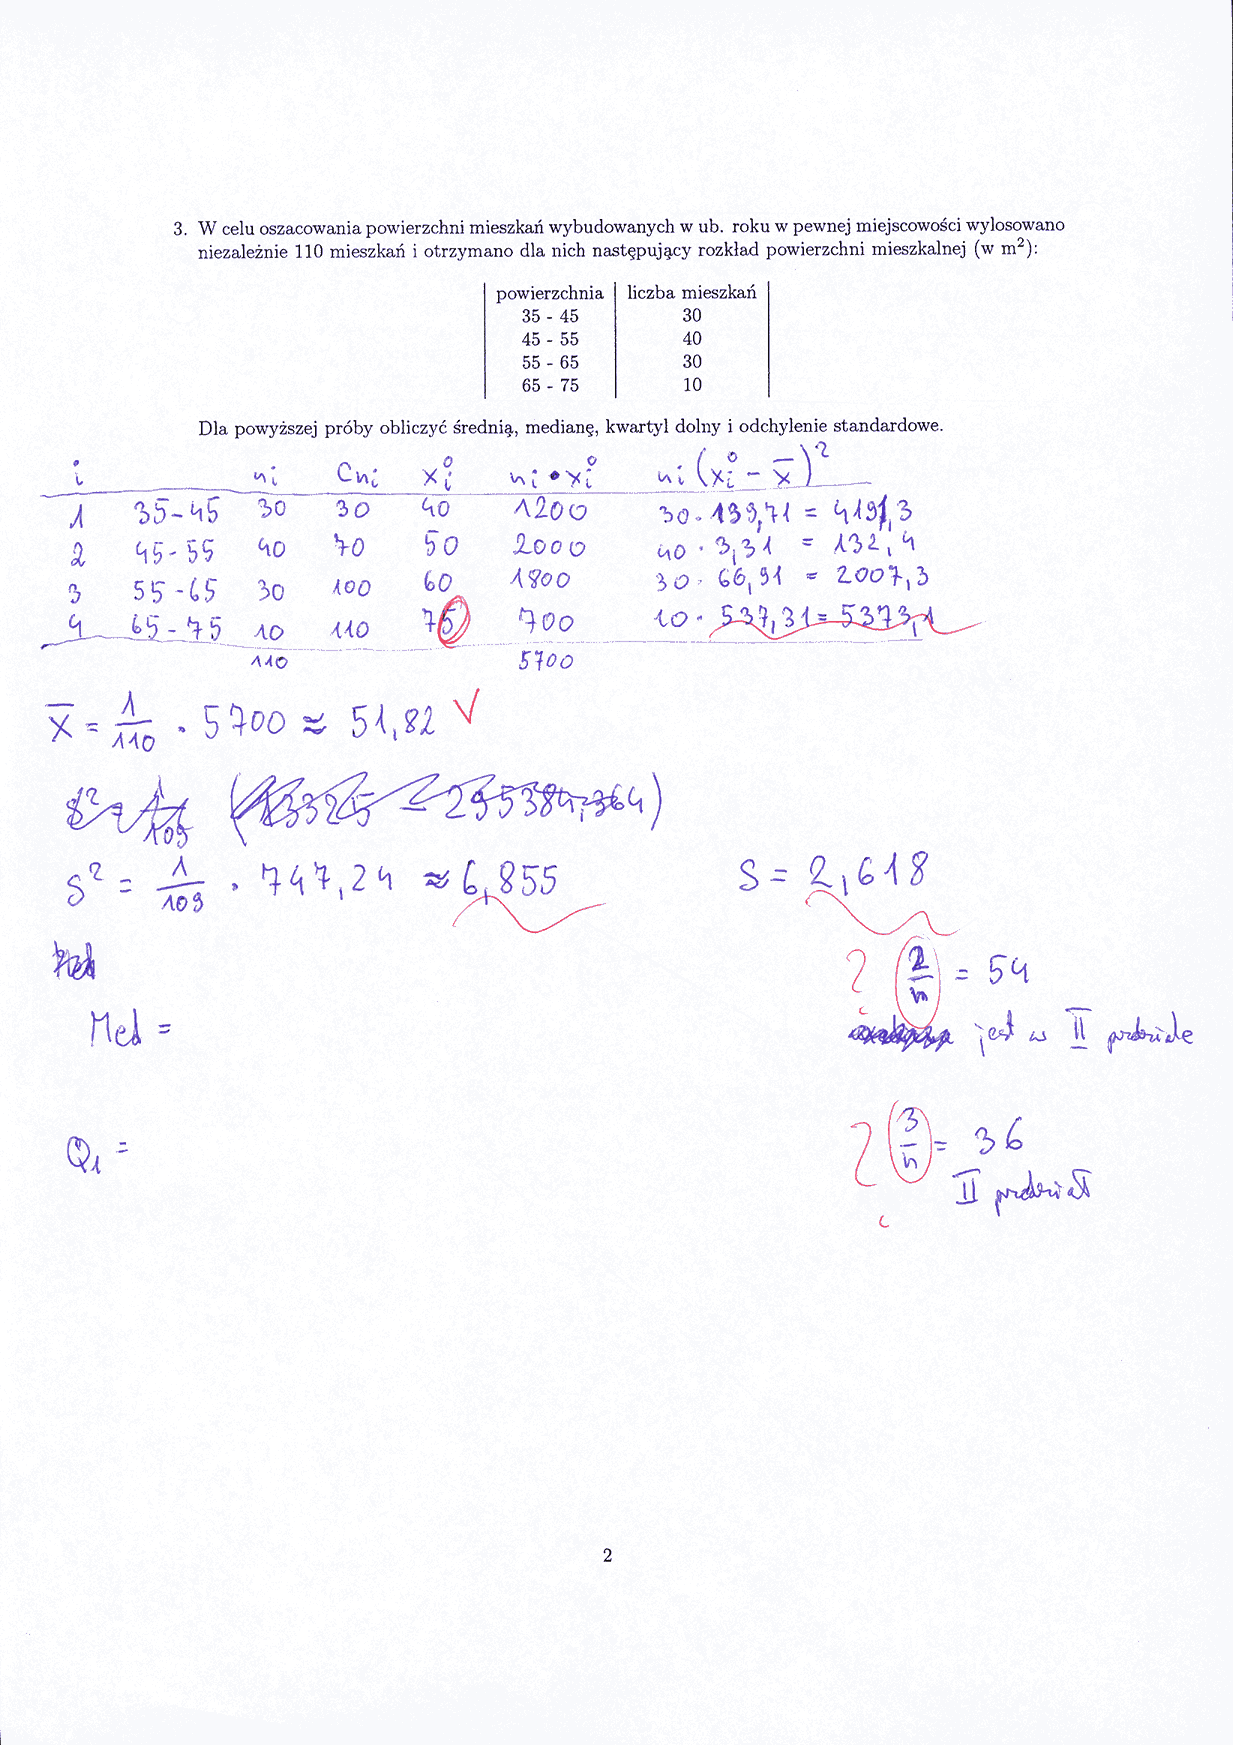 3. W celu oszacowania powierzchni mieszkań wybudowanych w ub. roku w pewnej miejscowości wylosowano
niezależnie 110 mieszkań i otrzymano dla nich następujący rozkład powierzchni mieszkalnej (w m²):
powierzchnia liczba mieszkań
35 - 45 30
45 - 55 40
55 - 65 30
65 - 75 10
Dla powyższej próby obliczyć średnią, medianę, kwartyl dolny i odchylenie standardowe.
i ni Cni x̊i ni • x̊i ni (x̊i - x̄)²
1 35-45 30 30 40 1200 30 · 139,71 = 4191,3
2 45-55 40 70 50 2000 40 · 3,31 = 132,4
3 55-65 30 100 60 1800 30 · 66,91 = 2007,3
4 65-75 10 110 75 700 10 · 537,31 = 5373,1
110 5700
x̄ = 1/110 · 5700 ≈ 51,82 √
s² = 1/109 (13325 - 295384,364)
s² = 1/109 · 747,24 ≈ 6,855 S = 2,618
? 2/n = 54
Med = jest w II przedziale
Q1 = ? 3/n = 36
II przedział
2